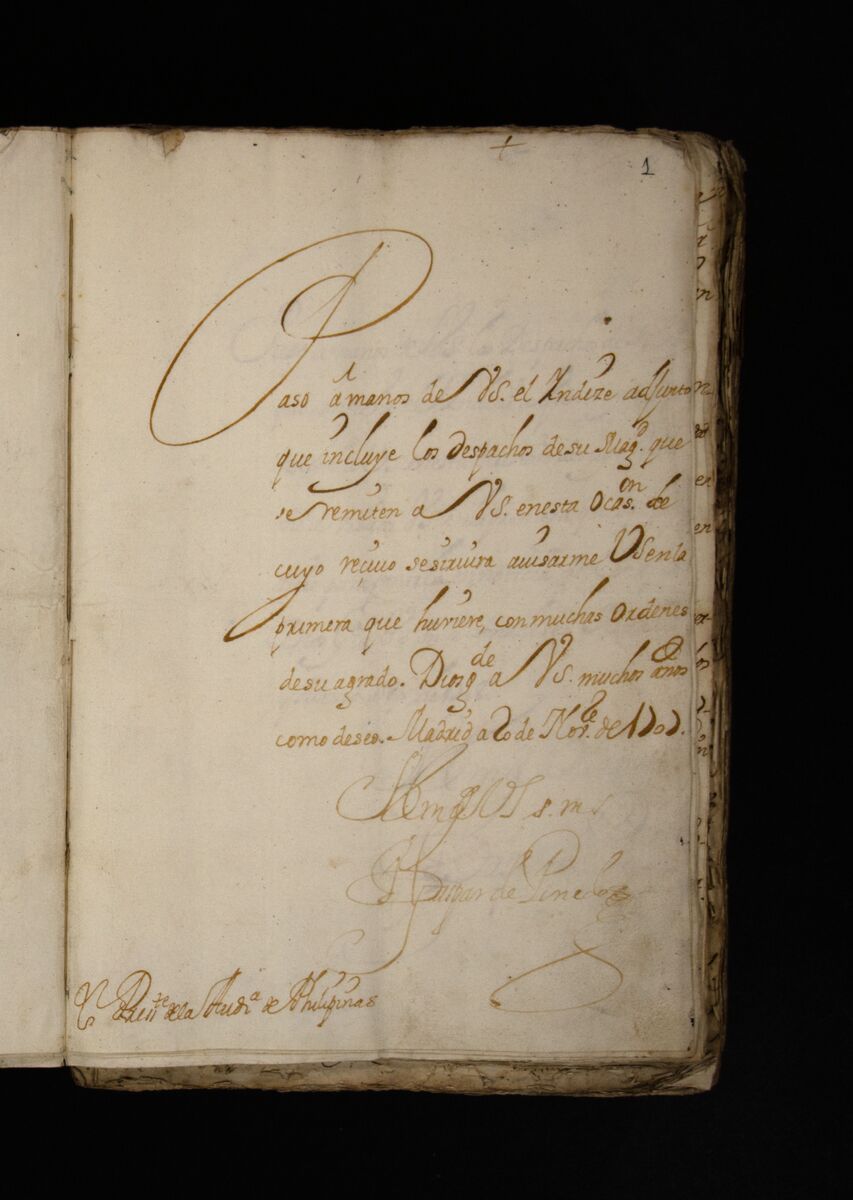 +
1
Paso â manos de VS. el Yndize adjunto
que incluye los despachos de su Magd. que
se remiten a VS. en esta ocason. de
cuyo reçiuo se siruira auisarme VS en la
primera que huuiere, con muchas ordenes
de su agrado. Dios gde a VS. muchos años
como deseo. Madrid a 20 de Nore. de 1707.
Gaspar de Pinedo
Sr Preste de la Audia de Philipinas